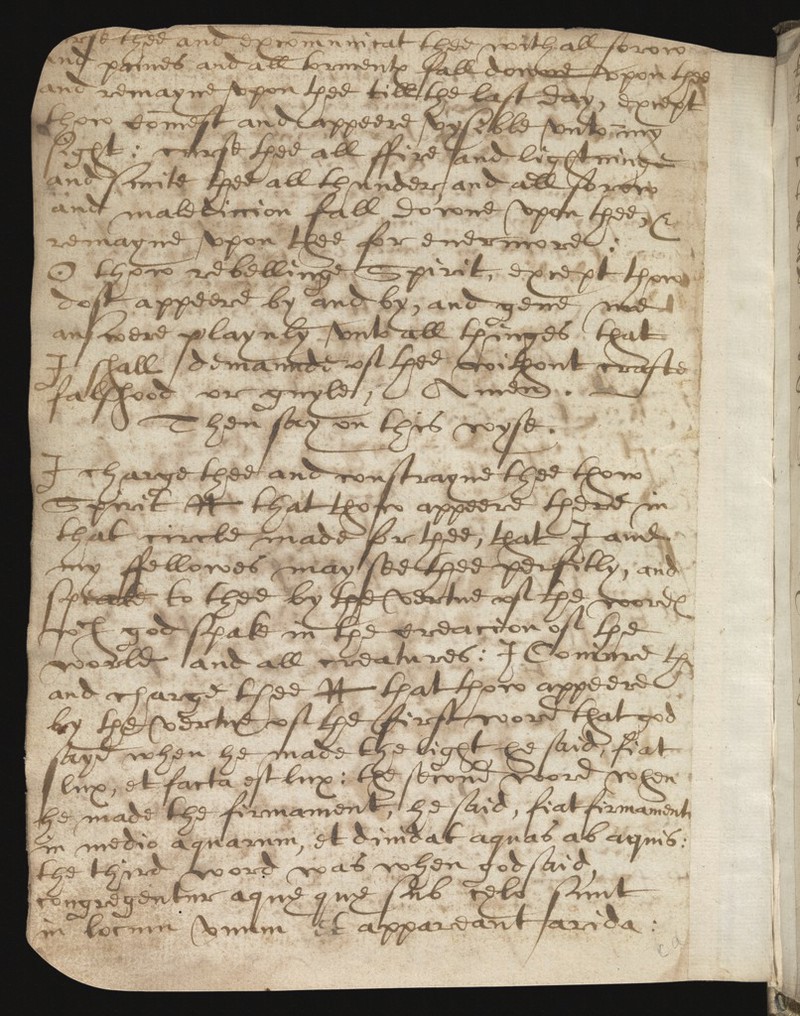 thee and excomunicat thee with all sorow
and paines and all torments fall downe upon thee
and remayne vpon thee till the last day, except
thow comest and appeere vysible vnto my
sight: curse thee all ffire and lightninge
and smite thee all thunder, and all sorow
and malediccion fall downe vpon thee, &
remayne vpon thee for evermore:
O thow rebellinge Spirit, except thow
dost appeere by and by, and geve me
answere playnly vnto all thinges that
I shall demaunde of thee without crafte
falshood or guyle, Amen.
Then say on this wyse.
I charge thee and constrayne thee thow
Spirit N that thow appeere there in
that circle made for thee, that I and
my ffellowes may see thee perfitly, and
speake to thee by the vertue of the words
wch god spake in the creacion of the
world and all creatures: I Coniure the
and charge thee N that thow appeere
by the vertue of the first word that god
sayd when he made the light he said, fiat
lux, et facta est lux: the second word when
he made the firmament, he said, fiat firmamentu
in medio aquarum, et dividat aquas ab aquis:
the third word was when god said,
congregentur aque que sub celo sunt
in locum vnum et appareant arida: